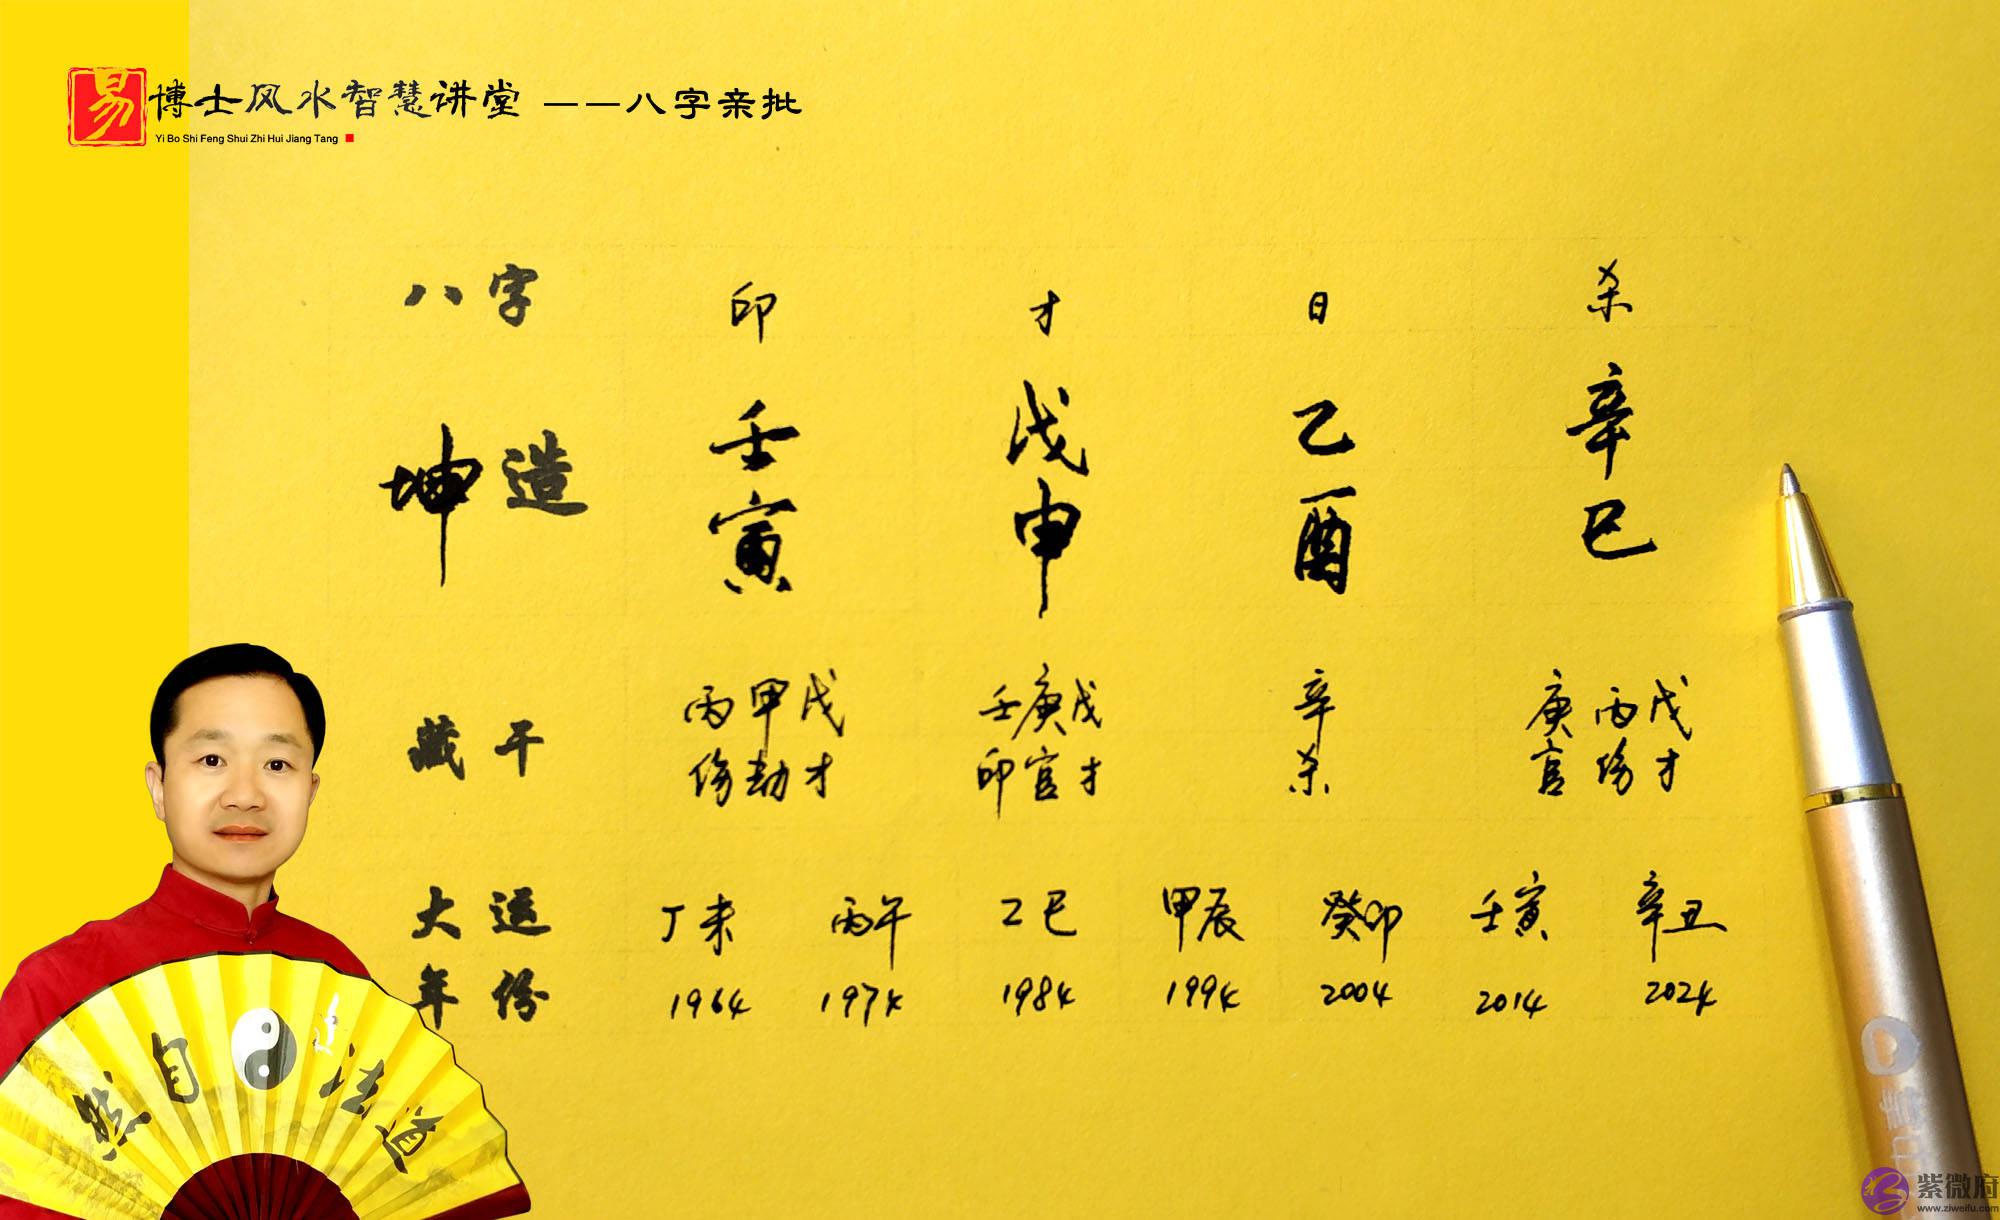 易 博士风水智慧讲堂 ——八字亲批
Yi Bo Shi Feng Shui Zhi Hui Jiang Tang
八字 印 才 日 杀
坤造 壬寅 戊申 乙酉 辛巳
藏干 丙甲戊 壬庚戊 辛 庚丙戊
伤劫才 印官才 杀 官伤才
大运 丁未 丙午 乙巳 甲辰 癸卯 壬寅 辛丑
年份 1964 1974 1984 1994 2004 2014 2024
道法自然
紫微府
www.ziweifu.com